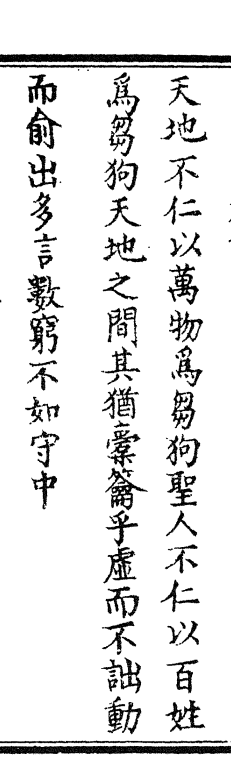 天地不仁以萬物爲芻狗聖人不仁以百姓
爲芻狗天地之間其猶橐籥乎虛而不詘動
而俞出多言數窮不如守中